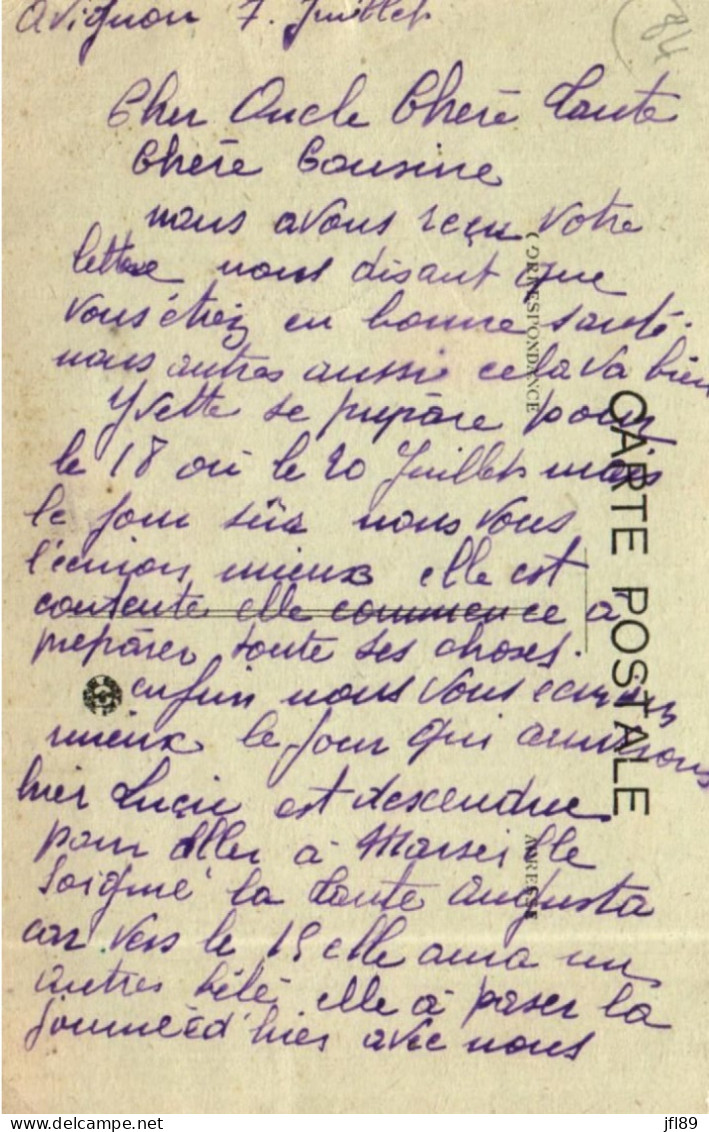 Avignon 7. Juillet
84
Cher Oncle Chère Tante
Chère Cousine
nous avons reçu votre
lettre nous disant que
vous étiez en bonne santé.
nous autres aussi cela va bien
Yvette se prepare pour
le 18 où le 20 Juillet mais
le jour sûr nous vous
l'ecrirons mieux elle est
contente elle commence à
preparer toute ses choses.
enfin nous vous ecrirons
mieux le jour qui arriverons
hier Lucie est descendue
pour aller à Marseille
soigné la tante Augusta
car vers le 15 elle aura un
autres bébé elle à passer la
journéed'hier avec nous
CORRESPONDANCE
CARTE POSTALE
ADRESSE
delcampe.net
jfl89